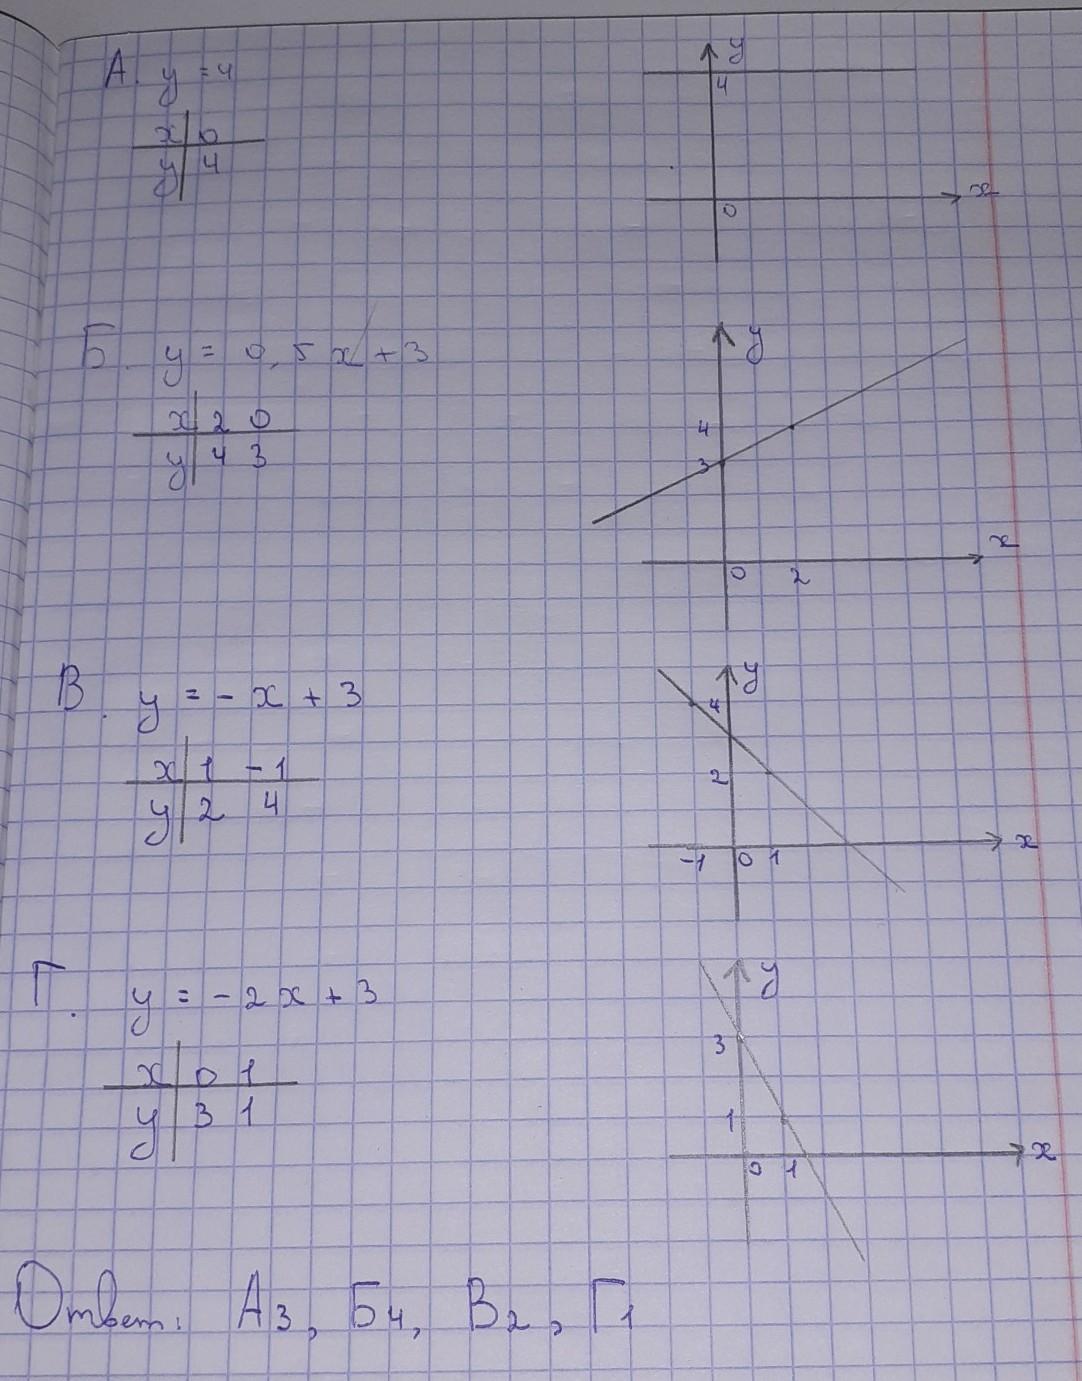 А. y = 4
x | 0
y | 4
y
4
0
x
Б. y = 0,5x + 3
x | 2 0
y | 4 3
y
4
3
0 2
x
В. y = -x + 3
x | 1 -1
y | 2 4
y
4
2
-1 0 1
x
Г. y = -2x + 3
x | 0 1
y | 3 1
y
3
1
0 1
x
Ответ: А3, Б4, В2, Г1